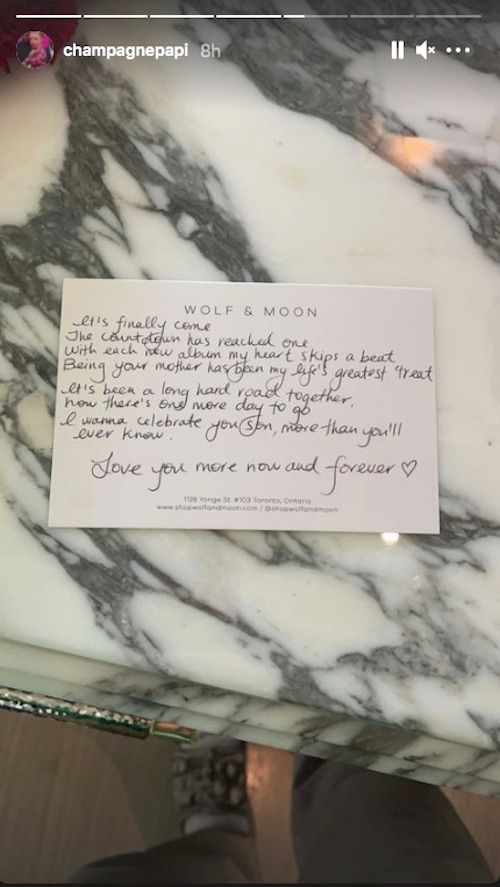 champagnepapi 8h
WOLF & MOON
It's finally come
The countdown has reached one
With each new album my heart skips a beat
Being your mother has been my life's greatest treat
It's been a long hard road together,
now there's one more day to go
I wanna celebrate you son, more than you'll
ever know.
Love you more now and forever ♡
1128 Yonge St. #103 Toronto, Ontario
www.shopwolfandmoon.com / @shopwolfandmoon